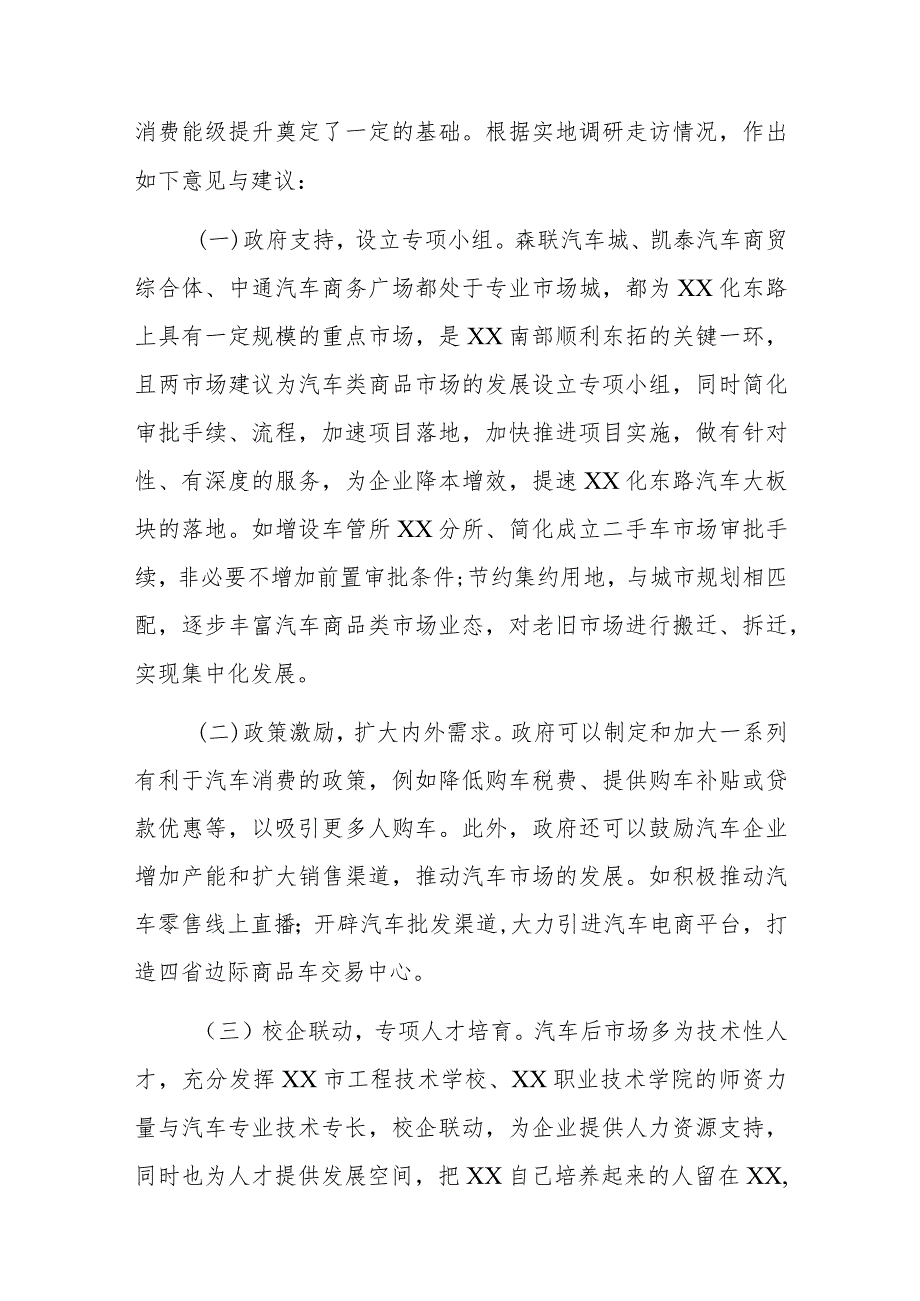 消费能级提升奠定了一定的基础。根据实地调研走访情况，作出
如下意见与建议：
(一)政府支持，设立专项小组。森联汽车城、凯泰汽车商贸
综合体、中通汽车商务广场都处于专业市场城，都为 XX 化东路
上具有一定规模的重点市场，是 XX 南部顺利东拓的关键一环，
且两市场建议为汽车类商品市场的发展设立专项小组，同时简化
审批手续、流程，加速项目落地，加快推进项目实施，做有针对
性、有深度的服务，为企业降本增效，提速 XX 化东路汽车大板
块的落地。如增设车管所 XX 分所、简化成立二手车市场审批手
续，非必要不增加前置审批条件;节约集约用地，与城市规划相匹
配，逐步丰富汽车商品类市场业态，对老旧市场进行搬迁、拆迁，
实现集中化发展。
(二)政策激励，扩大内外需求。政府可以制定和加大一系列
有利于汽车消费的政策，例如降低购车税费、提供购车补贴或贷
款优惠等，以吸引更多人购车。此外，政府还可以鼓励汽车企业
增加产能和扩大销售渠道，推动汽车市场的发展。如积极推动汽
车零售线上直播；开辟汽车批发渠道,大力引进汽车电商平台，打
造四省边际商品车交易中心。
（三）校企联动，专项人才培育。汽车后市场多为技术性人
才，充分发挥 XX 市工程技术学校、XX 职业技术学院的师资力
量与汽车专业技术专长，校企联动，为企业提供人力资源支持，
同时也为人才提供发展空间，把 XX 自己培养起来的人留在 XX,